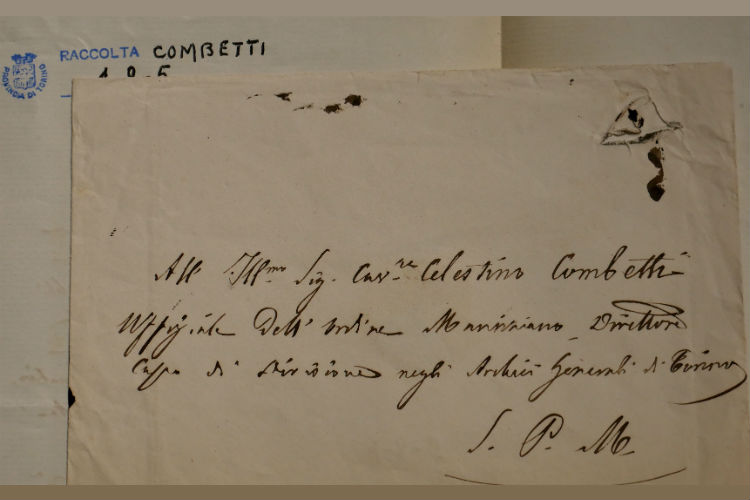 PROVINCIA DI TORINO
RACCOLTA COMBETTI
All' Ill.mo Sig. Cav.re Celestino Combetti
Uffiziale Dell' Ordine Mauriziano Direttore
Capo di Divisione negli Archivi Generali di Torino
S. P. M.